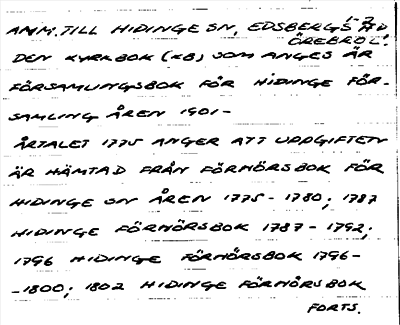 ANM. TILL HIDINGE SN, EDSBERGS HD
ÖREBRO L.
DEN KYRKBOK (KB) SOM ANGES ÄR
FÖRSAMLINGSBOK FÖR HIDINGE FÖR-
SAMLING ÅREN 1901-
ÅRTALET 1775 ANGER ATT UPPGIFTEN
ÄR HÄMTAD FRÅN FÖRHÖRSBOK FÖR
HIDINGE SN ÅREN 1775-1780; 1787
HIDINGE FÖRHÖRSBOK 1787-1792;
1796 HIDINGE FÖRHÖRSBOK 1796-
-1800; 1802 HIDINGE FÖRHÖRSBOK
FORTS.